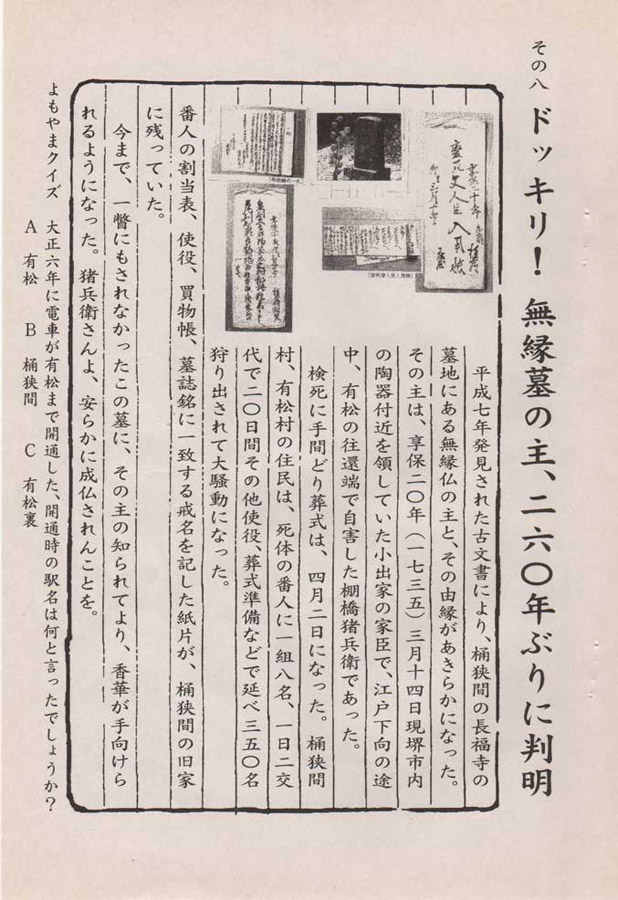 その八 ドッキリ！ 無縁墓の主、二六〇年ぶりに判明
平成七年発見された古文書により、桶狭間の長福寺の
墓地にある無縁仏の主と、その由縁があきらかになった。
その主は、享保二〇年（一七三五）三月十四日現堺市内
の陶器付近を領していた小出家の家臣で、江戸下向の途
中、有松の往還端で自害した棚橋猪兵衛であった。
検死に手間どり葬式は、四月二日になった。桶狭間
村、有松村の住民は、死体の番人に一組八名、一日二交
代で二〇日間その他使役、葬式準備などで延べ三五〇名
狩り出されて大騒動になった。
番人の割当表、使役、買物帳、墓誌銘に一致する戒名を記した紙片が、桶狭間の旧家
に残っていた。
今まで、一瞥にもされなかったこの墓に、その主の知られてより、香華が手向けら
れるようになった。猪兵衛さんよ、安らかに成仏されんことを。
よもやまクイズ 大正六年に電車が有松まで開通した、開通時の駅名は何と言ったでしょうか？
A 有松 B 桶狭間 C 有松裏